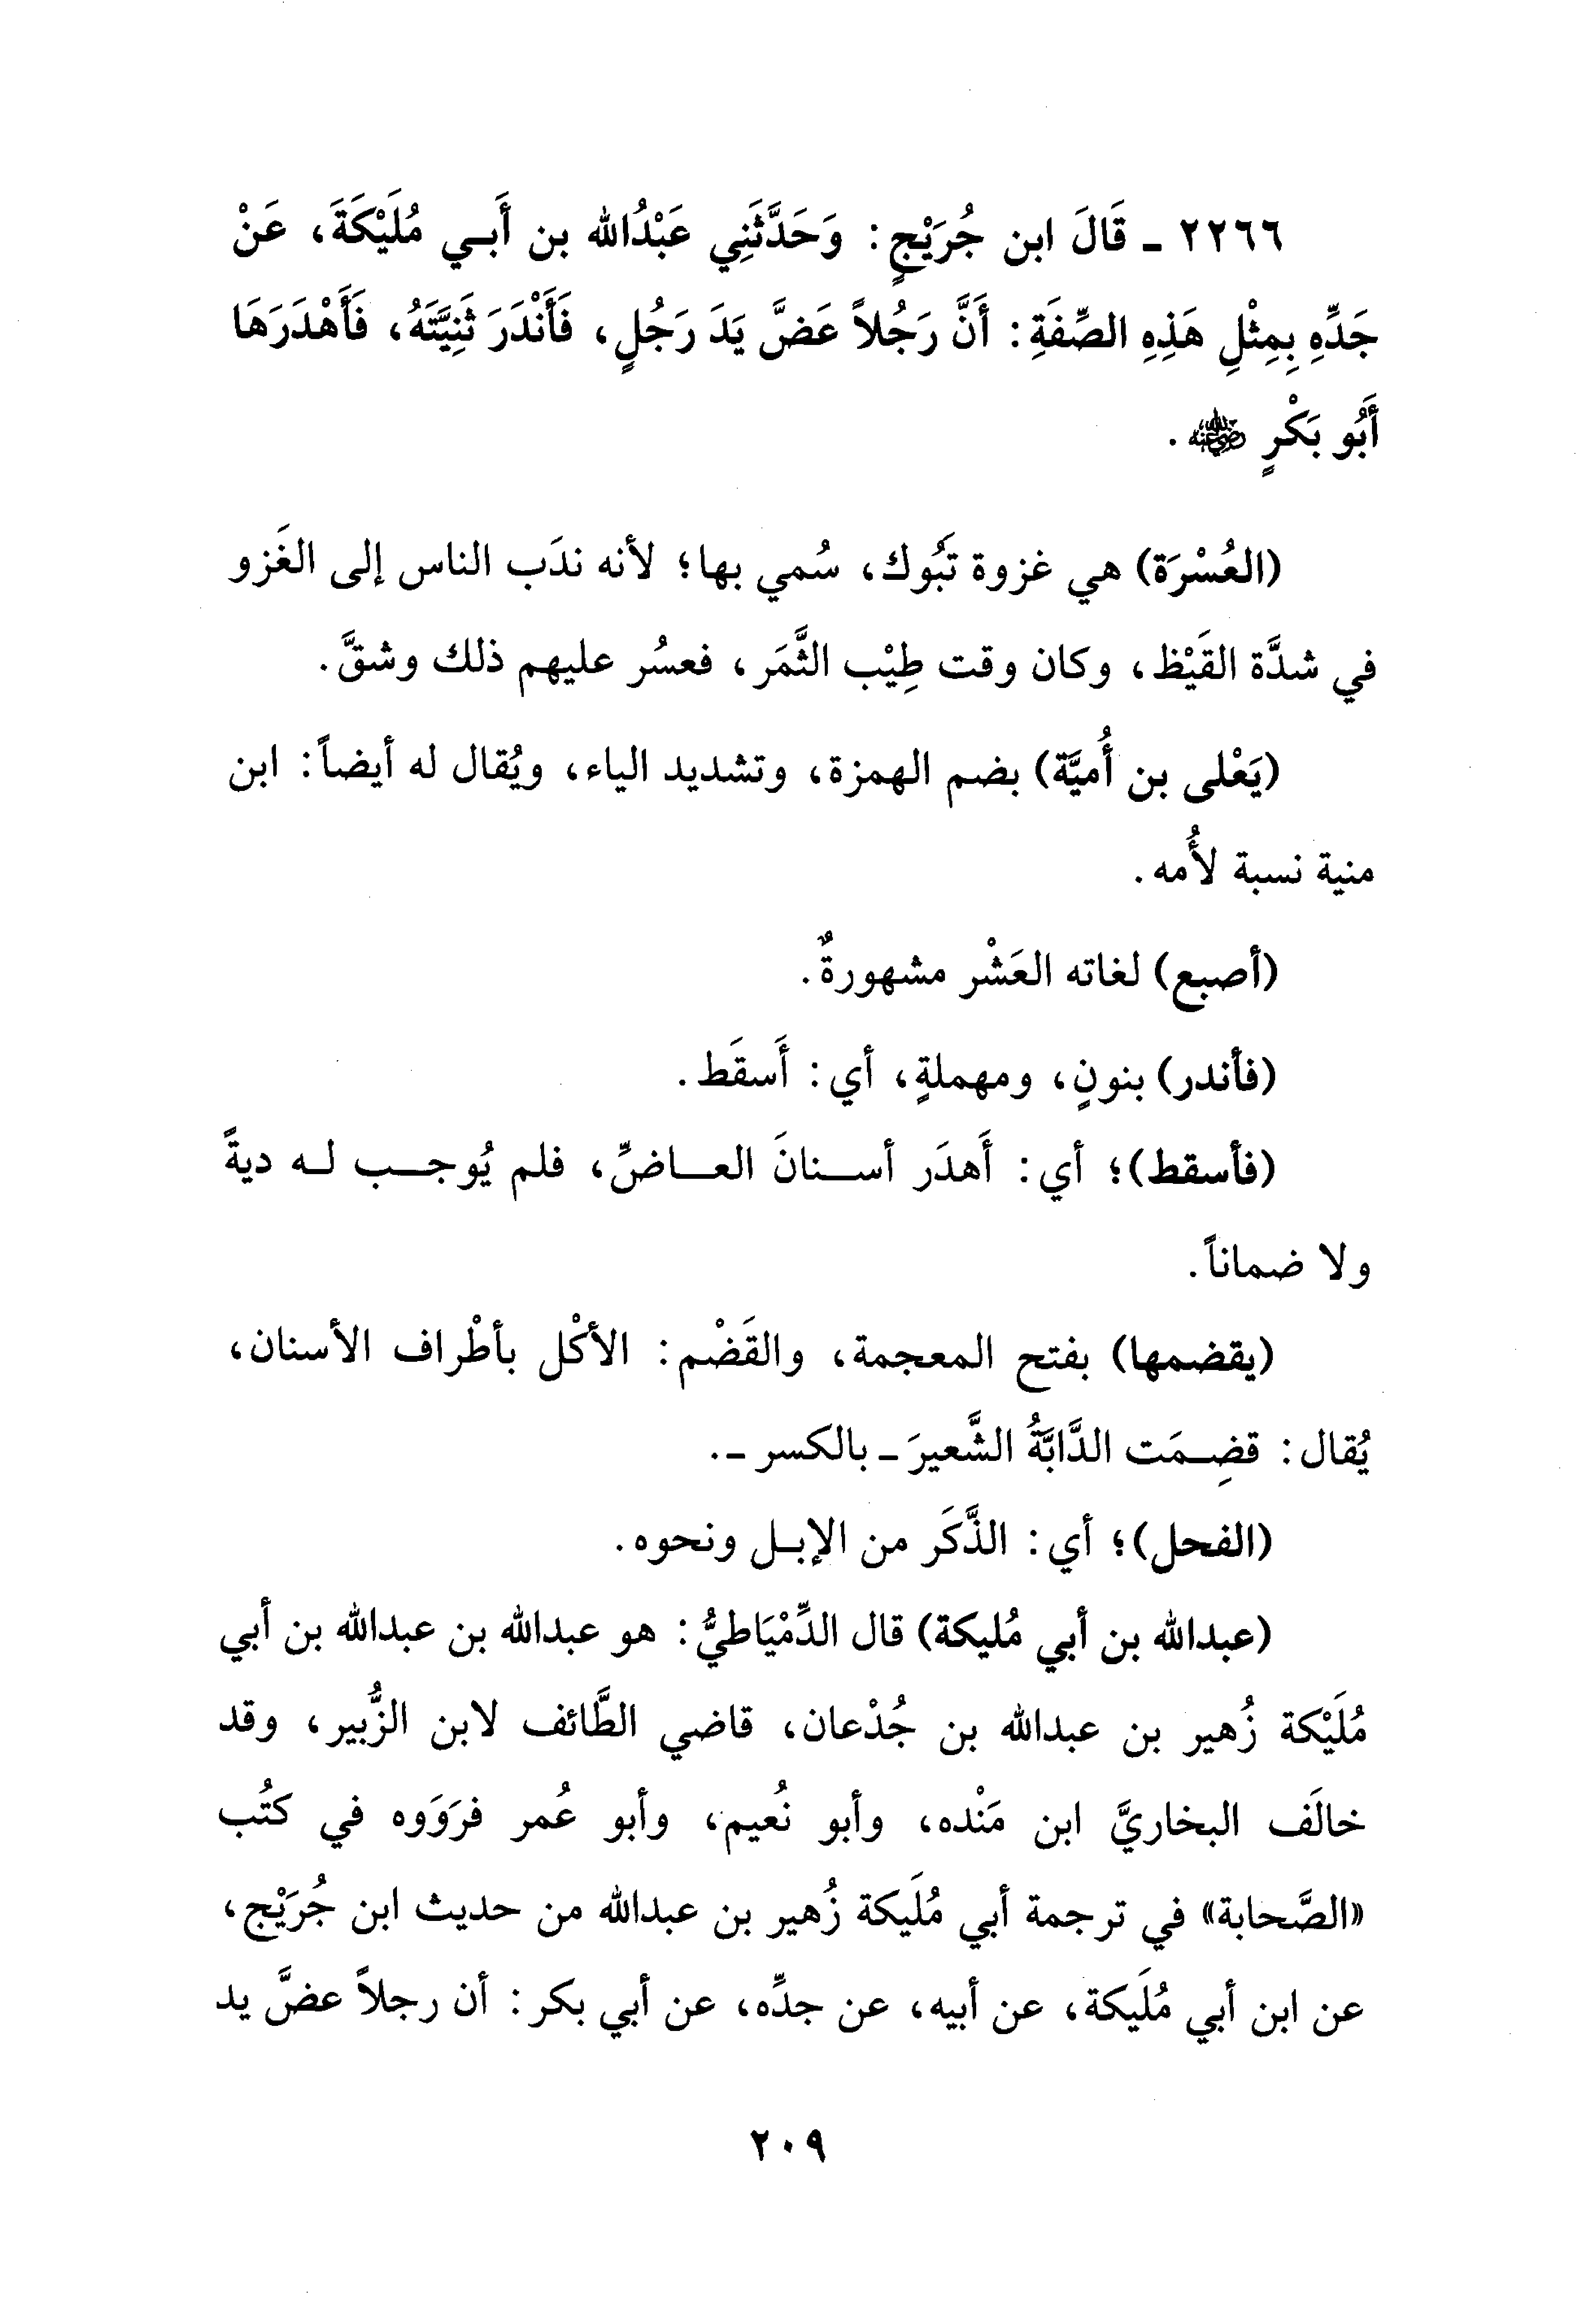 ٢٢٦٦ ـ قَالَ ابن جُرَيْجٍ: وَحَدَّثَنِي عَبْدُالله بن أَبـي مُلَيْكَةَ، عَنْ
جَدِّهِ بِمِثْلِ هَذِهِ الصِّفَةِ: أَنَّ رَجُلاً عَضَّ يَدَ رَجُلٍ، فَأَنْدَرَ ثَنِيَّتَهُ، فَأَهْدَرَهَا
أَبُو بَكْرٍ رضي الله عنه.
(العُسْرَة) هي غزوة تَبُوك، سُمي بها؛ لأنه ندَب الناس إلى الغَزو
في شدَّة القَيْظ، وكان وقت طِيْب الثَّمَر، فعسُر عليهم ذلك وشقَّ.
(يَعْلى بن أُميَّة) بضم الهمزة، وتشديد الياء، ويُقال له أيضاً: ابن
منية نسبة لأُمه.
(أصبع) لغاته العَشْر مشهورةٌ.
(فأندر) بنونٍ، ومهملةٍ، أي: أَسقَط.
(فأسقط)؛ أي: أَهدَر أســنانَ العــاضِّ، فلم يُوجــب لـه ديةً
ولا ضماناً.
(يقضمها) بفتح المعجمة، والقَضْم: الأكْل بأطْراف الأسنان،
يُقال: قضِـمَت الدَّابَّةُ الشَّعيرَ ـ بالكسر ـ.
(الفحل)؛ أي: الذَّكَر من الإبـل ونحوه.
(عبدالله بن أبي مُليكة) قال الدِّمْيَاطيُّ: هو عبدالله بن عبدالله بن أبي
مُلَيْكة زُهير بن عبدالله بن جُدْعان، قاضي الطَّائف لابن الزُّبير، وقد
خالَف البخاريَّ ابن مَنْده، وأبو نُعيم، وأبو عُمر فرَوَوه في كتُب
«الصَّحابة» في ترجمة أبي مُلَيكة زُهير بن عبدالله من حديث ابن جُرَيْج،
عن ابن أبي مُلَيكة، عن أبيه، عن جدِّه، عن أبي بكر: أن رجلاً عضَّ يد
٢٠٩